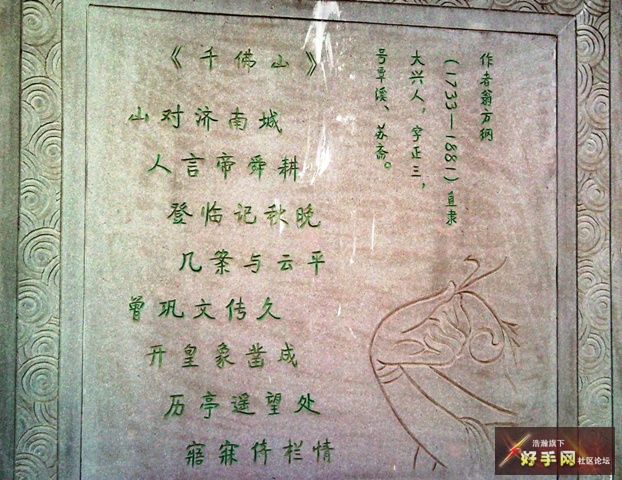 《千佛山》
山对济南城
人言帝舜耕
登临记秋晚
几案与云平
曾巩文传久
开皇象凿成
历亭遥望处
寤寐倚栏情
作者翁方纲
(1733—1881)直隶
大兴人，字正三，
号覃溪、苏斋。
浩瀚旗下
好手网社区论坛